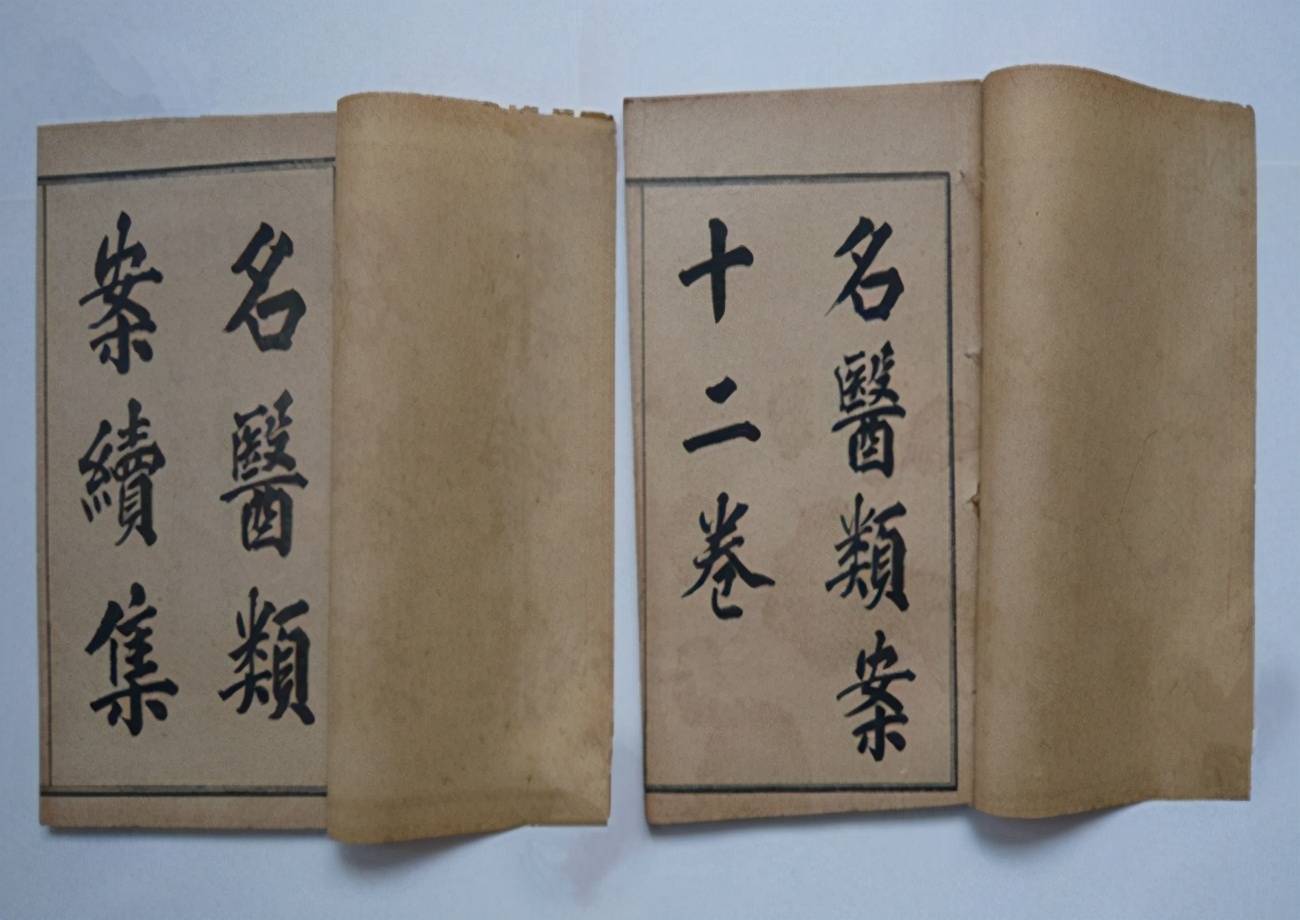 名醫類案
十二卷
名醫類
案續集